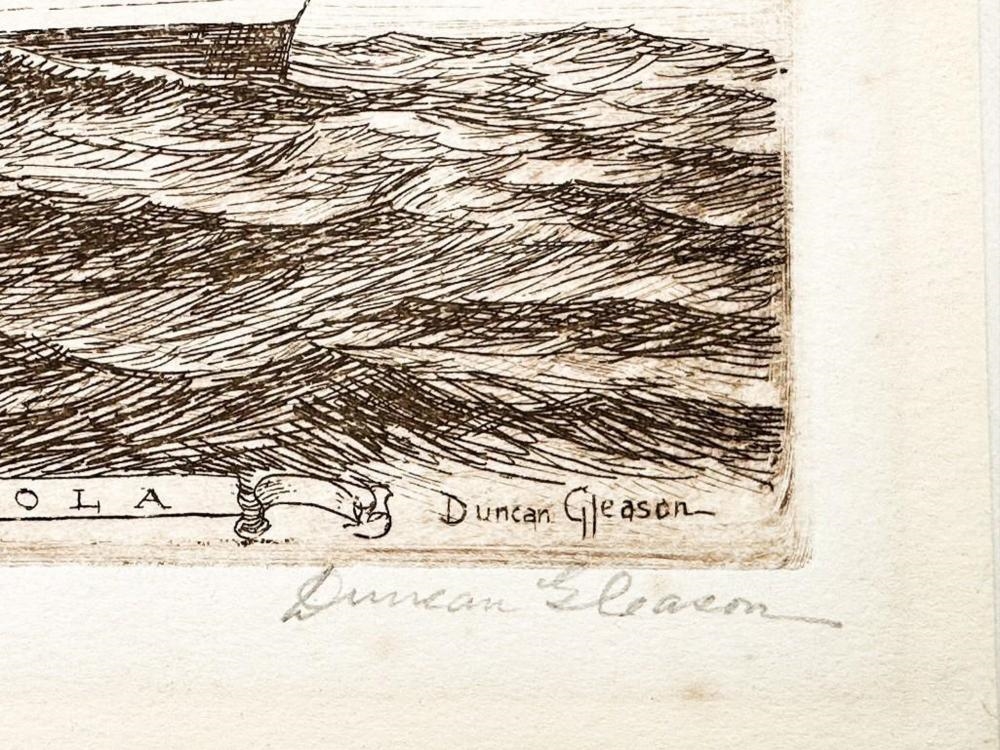 OLA
Duncan Gleason
Duncan Gleason